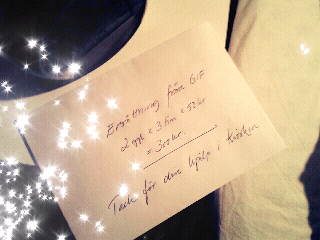 Ersättning från GIF
2 ggr x 3 tim x 50 kr
= 300 kr.
Tack för din hjälp i kiosken